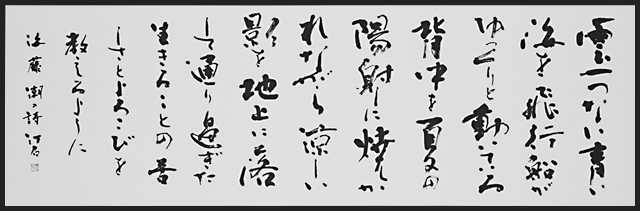 雲一つない青い
海を飛行船が
ゆっくりと動いている
背中を夏の
陽射しに焼か
れながら涼しい
影を地上に落
して通り過ぎた
生きることの苦
しさとよろこびを
教えるように
藤 の詩